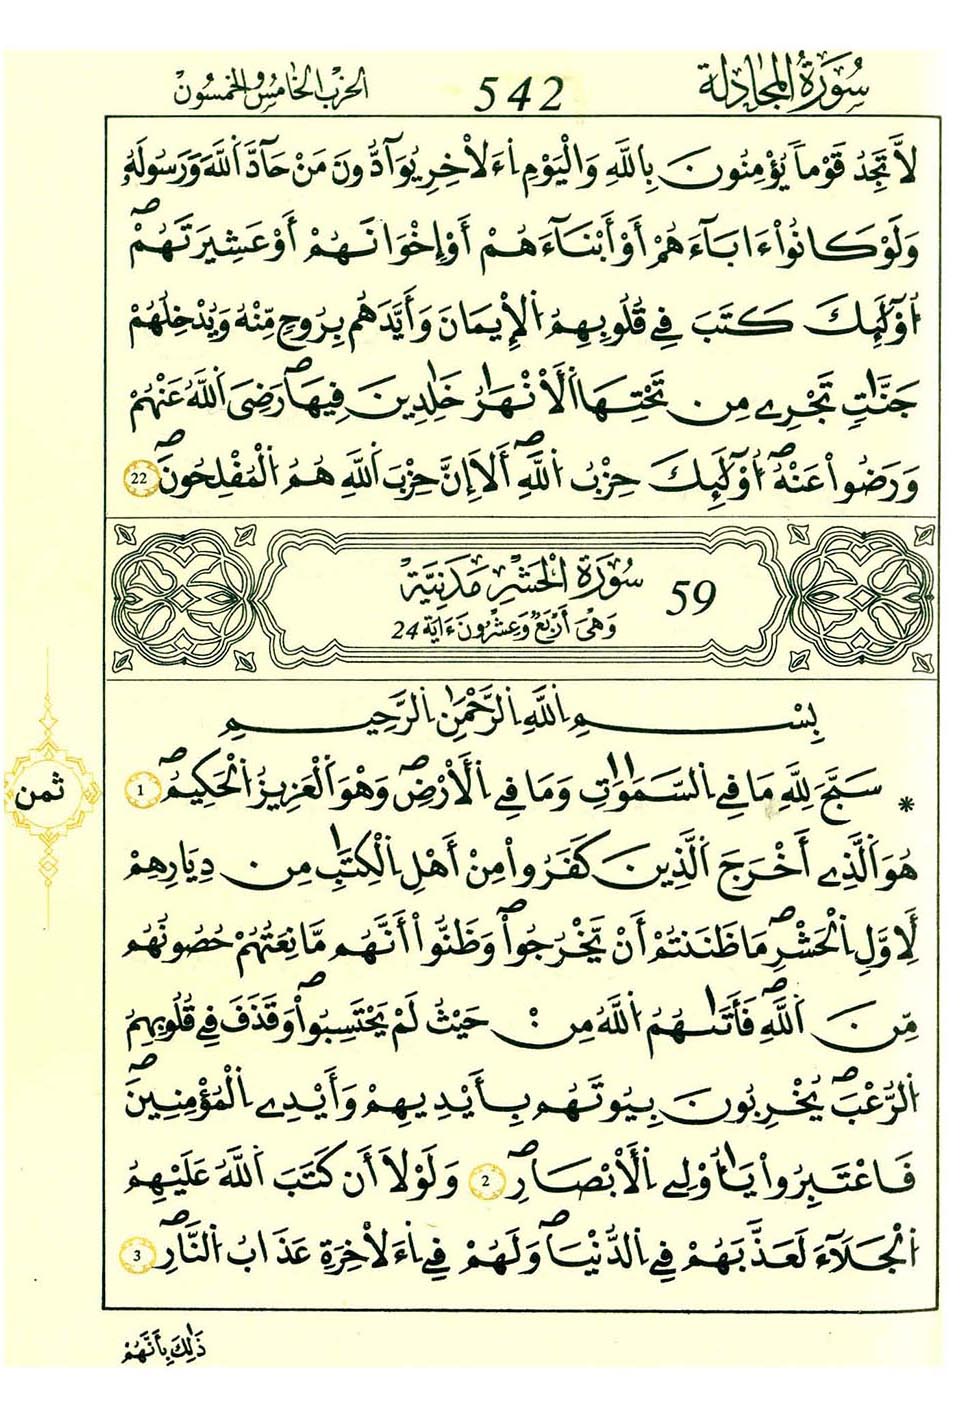 سُورَةُ الْمُجَادِلَةِ 542 الحِزْبُ الخَامِسُ وَالخَمْسُونَ
لاَّ تَجِدُ قَوْماً يُؤْمِنُونَ بِاللَّهِ وَالْيَوْمِ اِءَلاْخِرِ يُوَآدُّونَ مَنْ حَآدَّ اَللَّهَ وَرَسُولَهُۥ
وَلَوْ كَانُواْ ءَابَآءَهُمْ أَوْ أَبْنَآءَهُمْ أَوْ إِخْوَانَهُمْ أَوْ عَشِيرَتَهُمْۖ
أُوْلَٰٓئِكَ كَتَبَ فِي قُلُوبِهِمُ اُلْإِيمَانَ وَأَيَّدَهُم بِرُوحٍ مِّنْهُ وَيُدْخِلُهُمْ
جَنَّٰتٍ تَجْرِے مِن تَحْتِهَا اَلْأَنْهَٰرُ خَٰلِدِينَ فِيهَاۖ رَضِيَ اَللَّهُ عَنْهُمْ
وَرَضُواْ عَنْهُۖ أُوْلَٰٓئِكَ حِزْبُ اُللَّهِۖ أَلَا إِنَّ حِزْبَ اَللَّهِ هُمُ اُلْمُفْلِحُونَۖ 22
59 سُورَةُ الْحَشْرِ مَدَنِيَّةٌ
وَهْيَ أَرْبَعٌ وَعِشْرُونَ ءَايَة 24
بِسْمِ اِللَّهِ اِلرَّحْمَٰنِ اِلرَّحِيمِ
* سَبَّحَ لِلَّهِ مَا فِي اِلسَّمَٰوَٰتِ وَمَا فِي اِلْأَرْضِۖ وَهْوَ اَلْعَزِيزُ اُلْحَكِيمُۖ 1
ثمن
هُوَ اَلَّذِے أَخْرَجَ اَلَّذِينَ كَفَرُواْ مِنْ أَهْلِ اِلْكِتَٰبِ مِن دِيَٰرِهِمْ
لِأَوَّلِ اِلْحَشْرِۖ مَا ظَنَنتُمْ أَنْ يَّخْرُجُواْۖ وَظَنُّواْ أَنَّهُم مَّانِعَتُهُمْ حُصُونُهُم
مِّنَ اَللَّهِۖ فَأَتَىٰهُمُ اُللَّهُ مِنْ حَيْثُ لَمْ يَحْتَسِبُواْۖ وَقَذَفَ فِي قُلُوبِهِمُ
اُلرُّعْبَۖ يُخْرِبُونَ بِيُوتَهُم بِأَيْدِيهِمْ وَأَيْدِے اِلْمُؤْمِنِينَۖ
فَاعْتَبِرُواْ يَٰٓأُوْلِے اِلْأَبْصَارِۖ 2 وَلَوْلَا أَن كَتَبَ اَللَّهُ عَلَيْهِمُ
اُلْجَلَآءَ لَعَذَّبَهُمْ فِي اِلدُّنْيَاۖ وَلَهُمْ فِي اِءَلاْخِرَةِ عَذَابُ اُلنَّارِۖ 3
ذَٰلِكَ بِأَنَّهُمْ